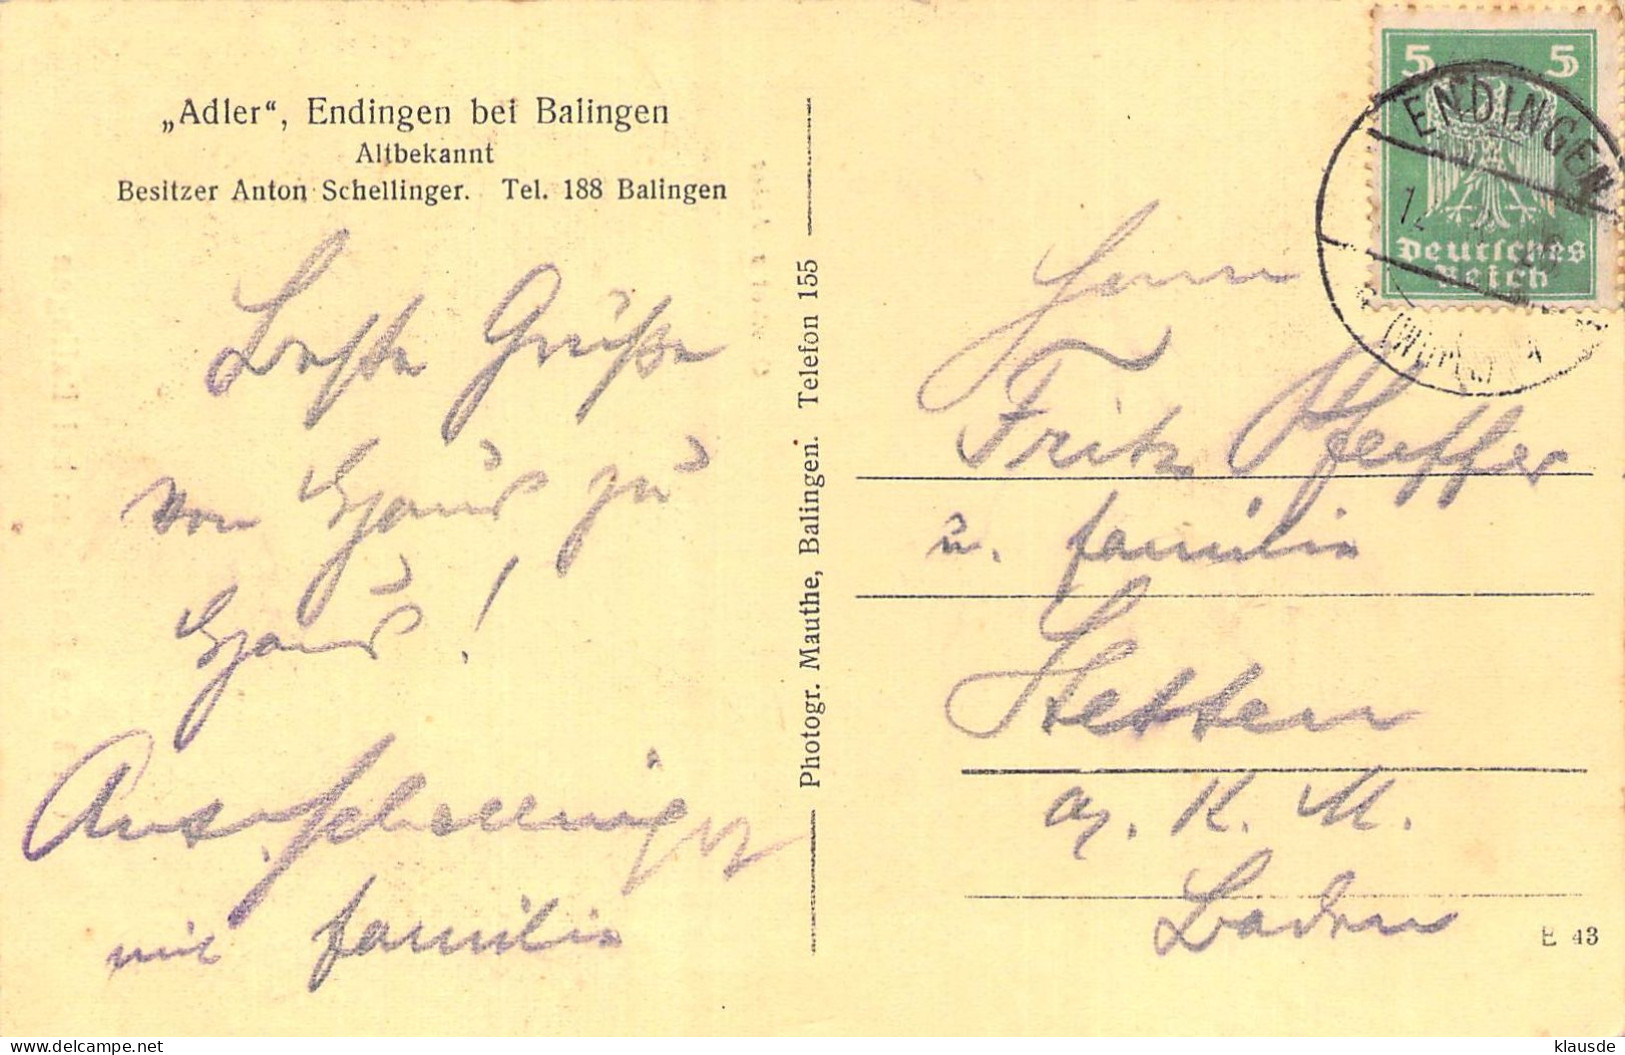 „Adler“, Endingen bei Balingen
Altbekannt
Besitzer Anton Schellinger. Tel. 188 Balingen
Beste Grüße
von Haus zu
Haus!
Anton Schellinger
mit Familie
Photogr. Mauthe, Balingen. Telefon 155
5 5
Deutsches
Reich
ENDINGEN
Herrn
Fritz Pfeiffer
u. Familie
Stetten
a. K. M.
Baden
E 43
delcampe.net
klausde